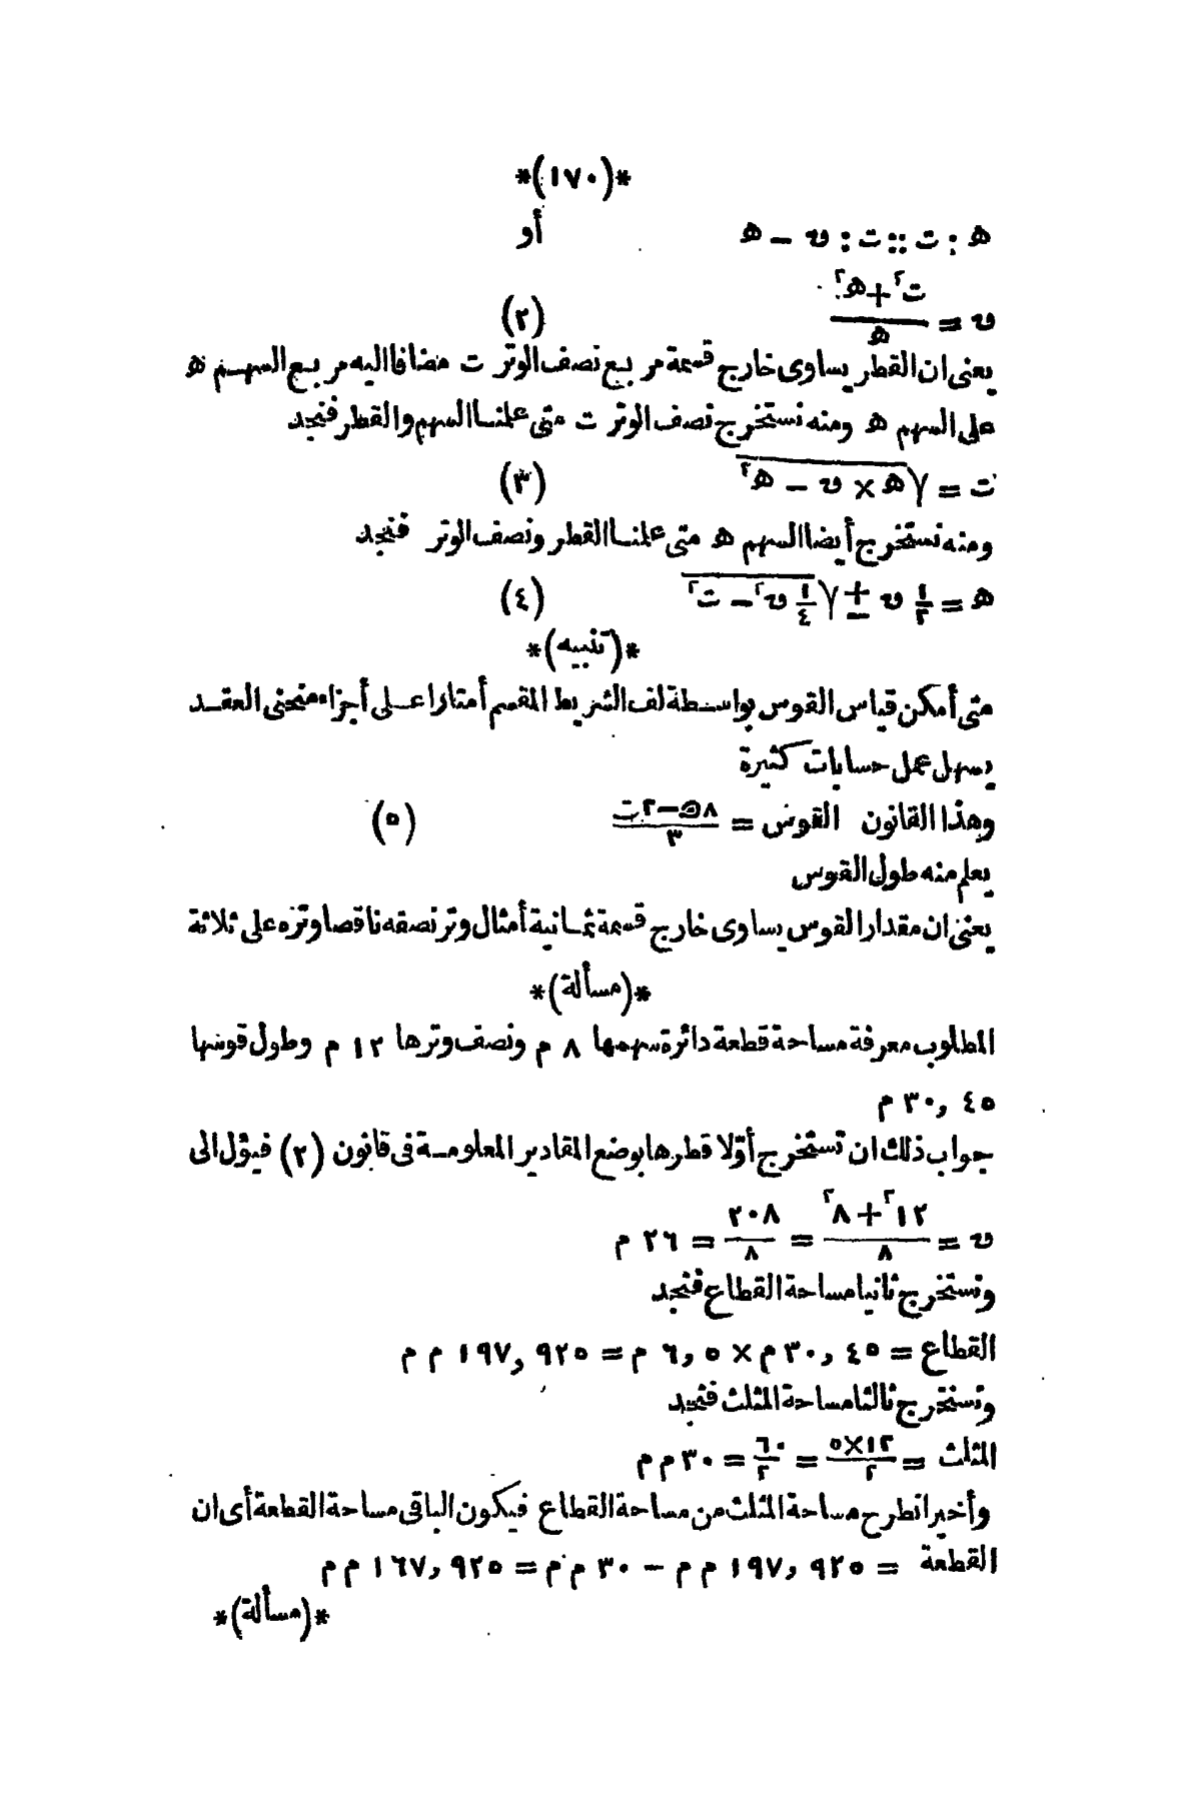 *(١٧٠)*
ه : ت :: ت : ق - ه أو
ق = (ت٢ + ه٢) / ه (٢)
يعنى ان القطر يساوى خارج قسمة مربع نصف الوتر ت مضافا اليه مربع السهم ه
على السهم ه ومنه نستخرج نصف الوتر ت متى علمنا السهم والقطر فنجد
ت = √(ه × ق - ه٢) (٣)
ومنه نستخرج أيضا السهم ه متى علمنا القطر ونصف الوتر فنجد
ه = ١/٢ ق ± √(١/٤ ق٢ - ت٢) (٤)
*(تنبيه)*
متى أمكن قياس القوس بواسطة لف الشريط المقسم أمتارا على أجزاء منحنى العقد
يسهل عمل حسابات كثيرة
وهذا القانون القوس = (٨ك-٢ت) / ٣ (٥)
يعلم منه طول القوس
يعنى ان مقدار القوس يساوى خارج قسمة ثمانية أمثال وتر نصفه ناقصا وتره على ثلاثة
*(مسألة)*
المطلوب معرفة مساحة قطعة دائرة سهمها ٨ م ونصف وترها ١٢ م وطول قوسها
٣٠,٤٥ م
جواب ذلك ان تستخرج أوّلا قطرها بوضع المقادير المعلومة فى قانون (٢) فيؤل الى
ق = (١٢٢ + ٨٢) / ٨ = ٢٠٨ / ٨ = ٢٦ م
ونستخرج ثانيا مساحة القطاع فنجد
القطاع = ٣٠,٤٥ م × ٦,٥ م = ١٩٧,٩٢٥ م م
ونستخرج ثالثا مساحة المثلث فنجد
المثلث = (١٢×٥) / ٢ = ٦٠ / ٢ = ٣٠ م م
وأخيرا نطرح مساحة المثلث من مساحة القطاع فيكون الباقى مساحة القطعة أى ان
القطعة = ١٩٧,٩٢٥ م م - ٣٠ م م = ١٦٧,٩٢٥ م م
*(مسألة)*